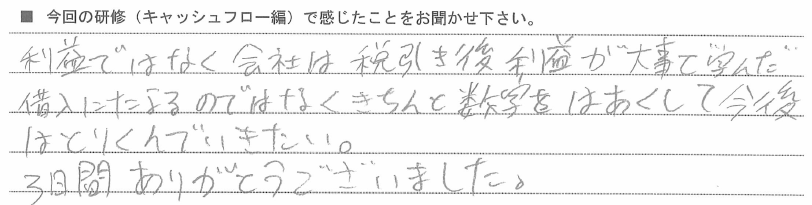 ■ 今回の研修（キャッシュフロー編）で感じたことをお聞かせ下さい。
利益ではなく会社は税引き後利益が大事で学んだ
借入にたよるのではなくきちんと数字をはあくして今後
はとりくんでいきたい。
3日間ありがとうございました。